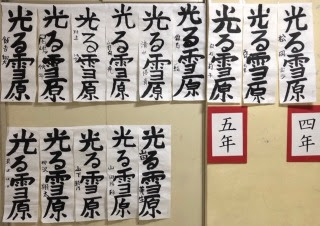 光る雪原
光る雪原
光る雪原
光る雪原
光る雪原
光る雪原
光る雪原
光る雪原
光る雪原
五年
四年
光る雪原
光る雪原
光る雪原
光る雪原
光る雪原